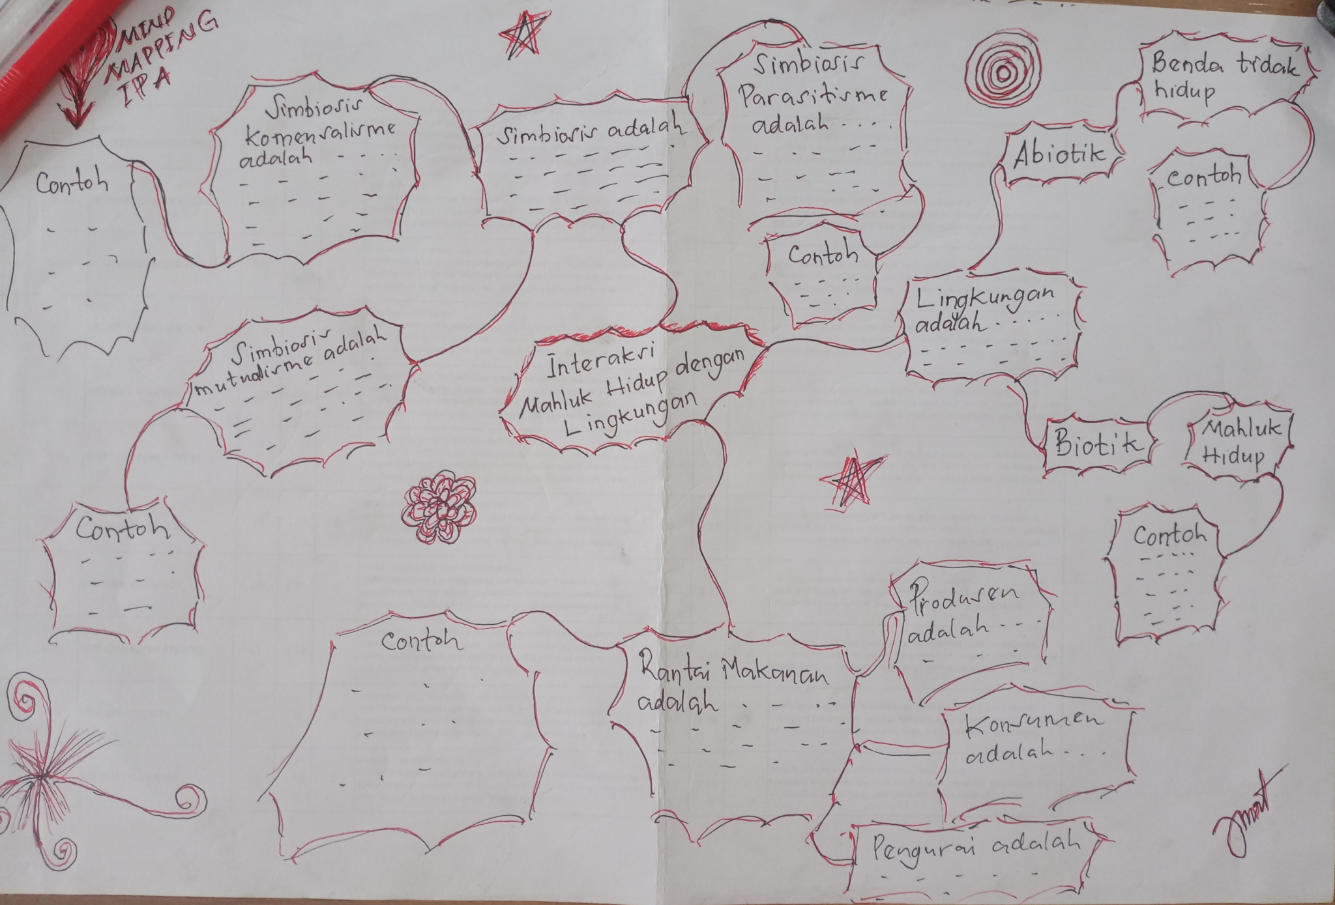 MIND
MAPPING
IPA
Contoh
Simbiosis
Komensalisme
adalah
Simbiosis adalah
Simbiosis
Parasitisme
adalah ....
Contoh
Benda tidak
hidup
Abiotik
Contoh
Lingkungan
adalah ......
Biotik
Mahluk
Hidup
Contoh
Interaksi
Mahluk Hidup dengan
Lingkungan
Simbiosis
mutualisme adalah
Contoh
Contoh
Rantai Makanan
adalah
Produsen
adalah
Konsumen
adalah ....
Pengurai adalah